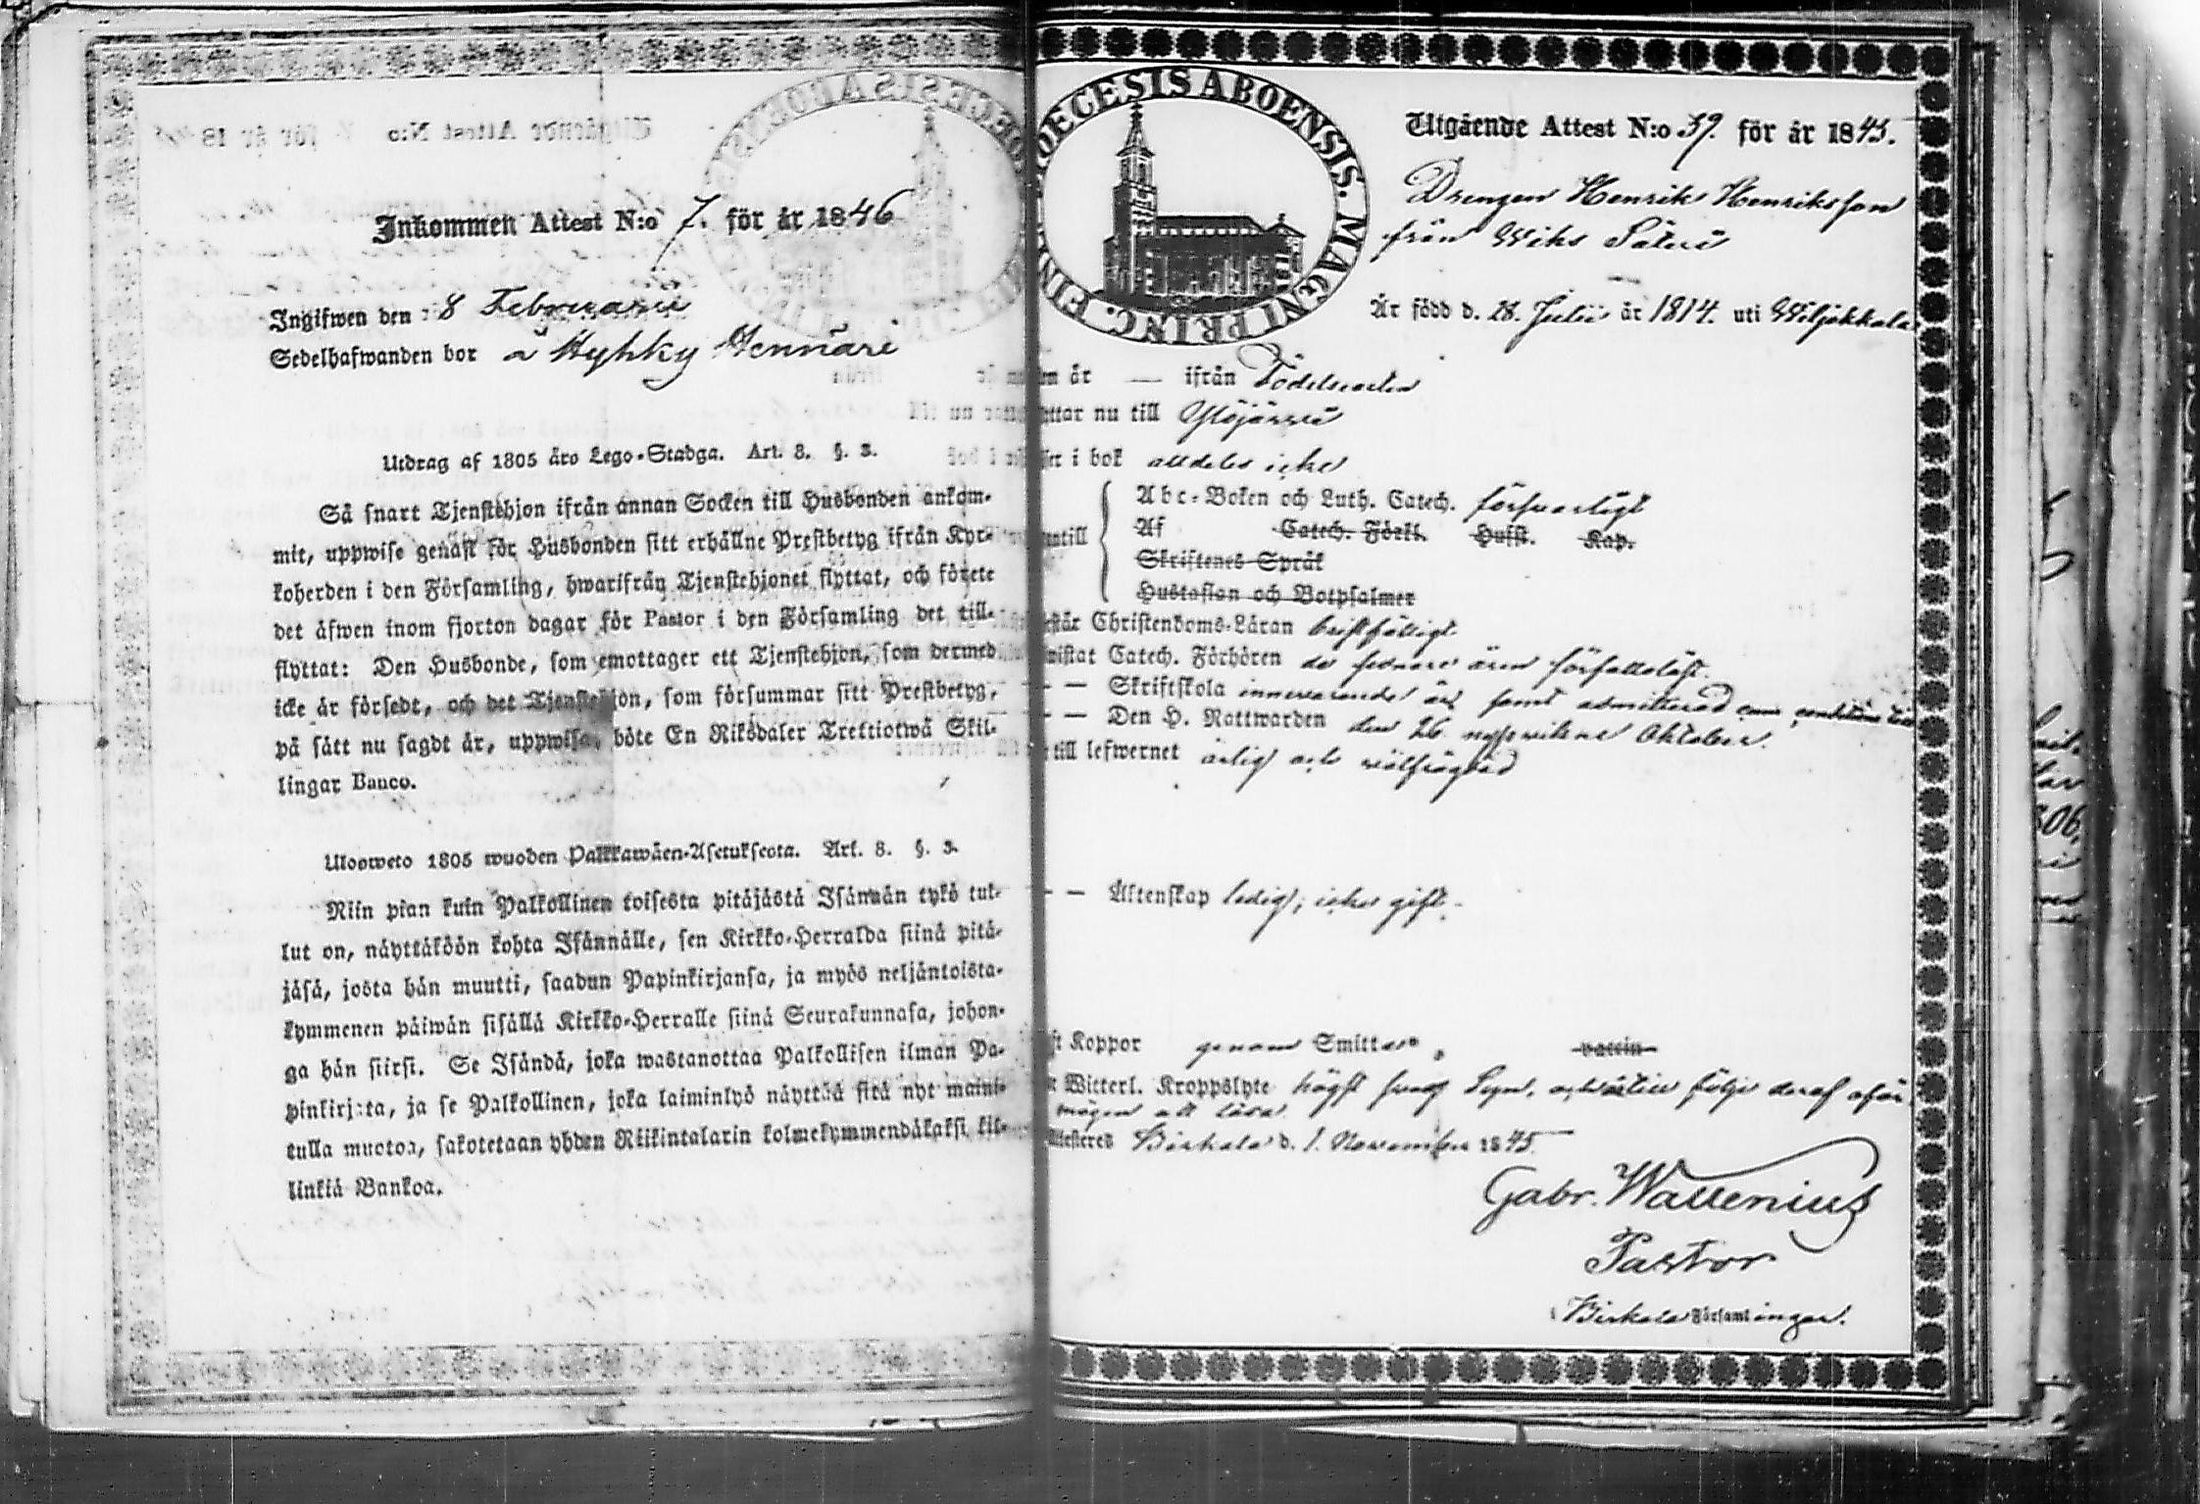 Inkommen Attest N:o 7. för år 1846
Ingifwen den 8 Februarii
Sedelhafwanden bor å Hyhky Hennäri
Utdrag af 1805 års Lego-Stadga. Art. 8. §. 3.
Så snart Tjenstehjon ifrån annan Socken till Husbonden ankom-
mit, uppwise genast för Husbonden sitt erhållne Prestbetyg ifrån Kyr-
koherden i den Församling, hwarifrån Tjenstehjonet flyttat, och förete
det äfwen inom fjorton dagar för Pastor i den Församling det till-
flyttat: Den Husbonde, som emottager ett Tjenstehjon, som dermed
icke är försedt, och det Tjenstehjon, som försummar sitt Prestbetyg,
på sätt nu sagdt är, uppwisa, böte En Riksdaler Trettiotwå Skil-
lingar Banco.
Ulosweto 1805 wuoden Palkkawäen-Asetuksesta. Art. 8. §. 3.
Niin pian kuin Palkollinen toisesta pitäjästä Isännän tykö tul-
lut on, näyttäköön kohta Isännälle, sen Kirkko-Herralda siinä pitä-
jäsä, josta hän muutti, saadun Papinkirjansa, ja myös neljäntoista-
kymmenen päiwän sisällä Kirkko-Herralle siinä Seurakunnasa, johon-
ga hän siirsi. Se Isändä, joka wastanottaa Palkollisen ilman Pa-
pinkirjata, ja se Palkollinen, joka laiminlyö näyttää sitä nyt maini-
tulla muotoa, sakotetaan yhden Riikintalarin kolmekymmendäkaksi kil-
linkiä Bankoa.
DIOECESIS ABOENSIS. MAGNI PRINC. FINL
Utgående Attest N:o 39. för år 1845.
Drengen Henrik Henriksson
från Wiks Säteri
Är född d. 28. Julii år 1814. uti Wiljakkala
år — ifrån Födelseorten
ttar nu till Ylöjärvi
i bok alldeles icke
Abc-Boken och Luth. Catech. försvarligt
Af Catech. Förkl. Hufst. Kap.
Skriftenes Språk
Hustaflan och Botpsalmer
står Christendoms-Läran bristfälligt.
wistat Catech. Förhören de sednare åren förfallolöst.
— — Skriftskola innevarande år samt admitterad
— — Den H. Nattwarden den 26 nyssvikne Oktober.
till lefwernet ärlig och wälfrägdad
— — Äktenskap ledig; icke gift.
ft Koppor genom Smitta vaccin
Witterl. Kroppslyte högst swag Syn, och
mögen att läsa.
Attesteres Birkala d. 1. November 1845.
Gabr. Wallenius
Pastor
i Birkala Församlingar.